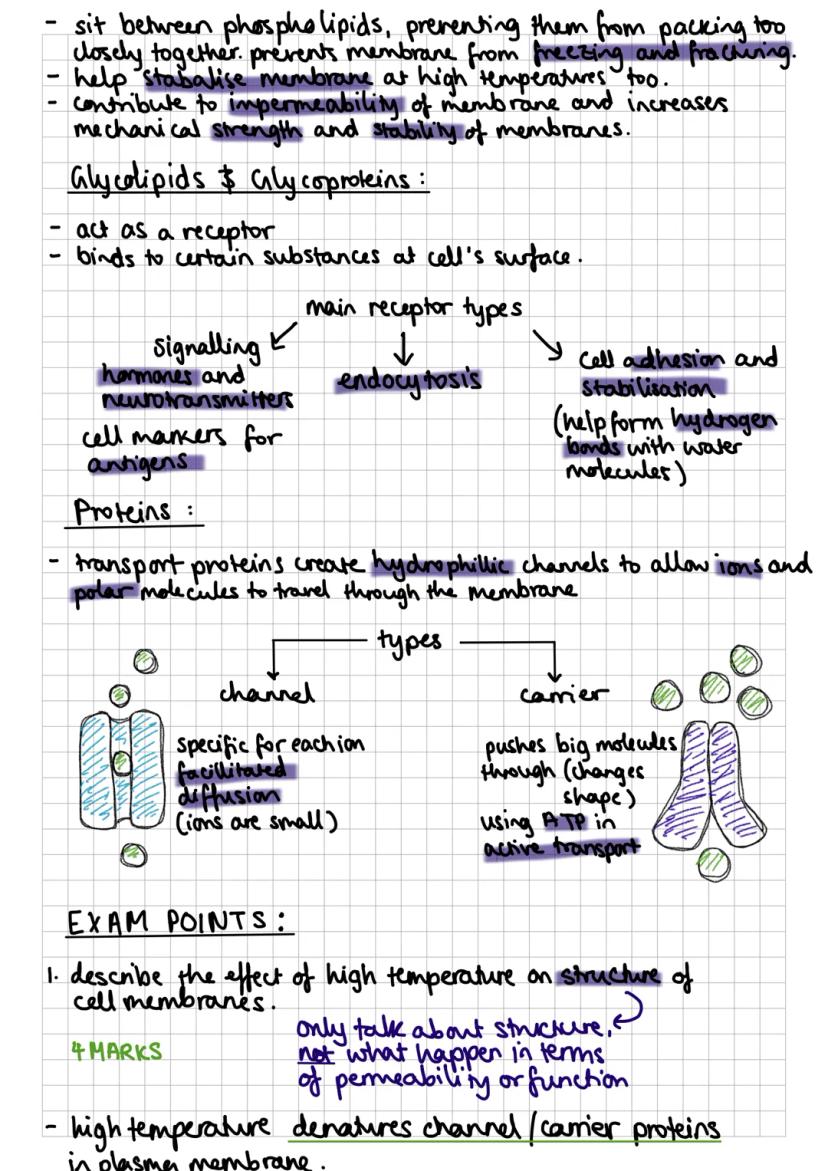 - sit between phospholipids, preventing them from packing too
closely together. prevents membrane from freezing and fracturing.
- help stabalise membrane at high temperatures too.
- contribute to impermeability of membrane and increases
mechanical strength and stability of membranes.
Glycolipids & Glycoproteins :
- act as a receptor
- binds to certain substances at cell's surface.
main receptor types
signalling
hormones and
neurotransmitters
cell markers for
antigens
endocytosis
cell adhesion and
stabilisation
(help form hydrogen
bonds with water
molecules)
Proteins :
- transport proteins create hydrophillic channels to allow ions and
polar molecules to travel through the membrane
types
channel
specific for each ion
facilitated
diffusion
(ions are small)
carrier
pushes big molecules
through (changes
shape)
using ATP in
active transport
EXAM POINTS :
1. describe the effect of high temperature on structure of
cell membranes.
4 MARKS
only talk about structure,
not what happen in terms
of permeability or function
- high temperature denatures channel/carrier proteins
in plasma membrane.